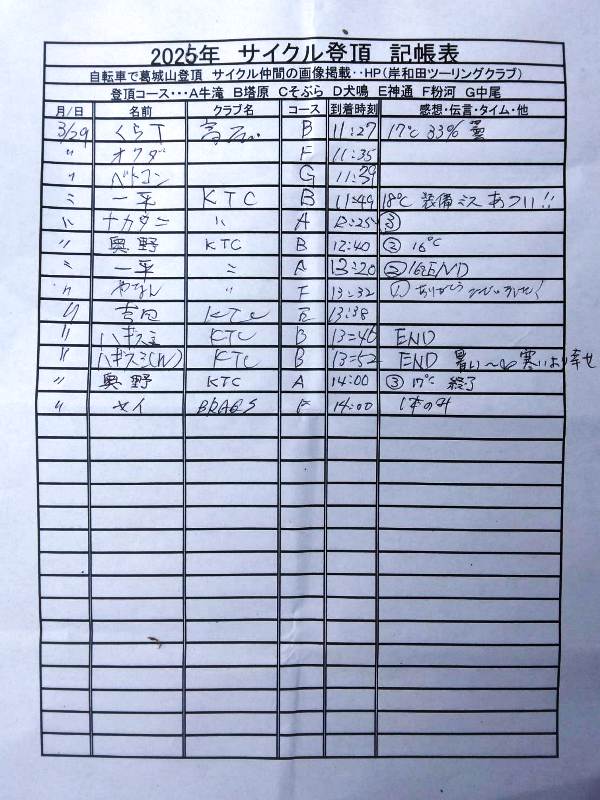 2025年 サイクル登頂 記帳表
自転車で葛城山登頂 サイクル仲間の画像掲載‥HP(岸和田ツーリングクラブ)
登頂コース・・・A牛滝 B塔原 Cそぶら D犬鳴 E神通 F粉河 G中尾
月/日 名前 クラブ名 コース 到着時刻 感想・伝言・タイム・他
3/29 くらT B 11:27 17℃ 33%
〃 オクダ F 11:35
〃 ベトコン G 11:39
〃 一平 KTC B 11:49 18℃ 装備ミス あつい!!
〃 ナカタニ 〃 A 12:25 ③
〃 奥野 KTC B 12:40 ② 16℃
〃 一平 〃 A 13:20 ② END
〃 やなん 〃 F 13:32 ① ありがとう
〃 KTC 13:38
〃 ハギス主 KTC B 13=46 END
〃 ハギスミ(W) KTC B 13=52 END 暑い〜 寒いより幸せ
〃 奥野 KTC A 14:00 ③ 17℃ 終了
〃 セイ F 14:00 1本のみ